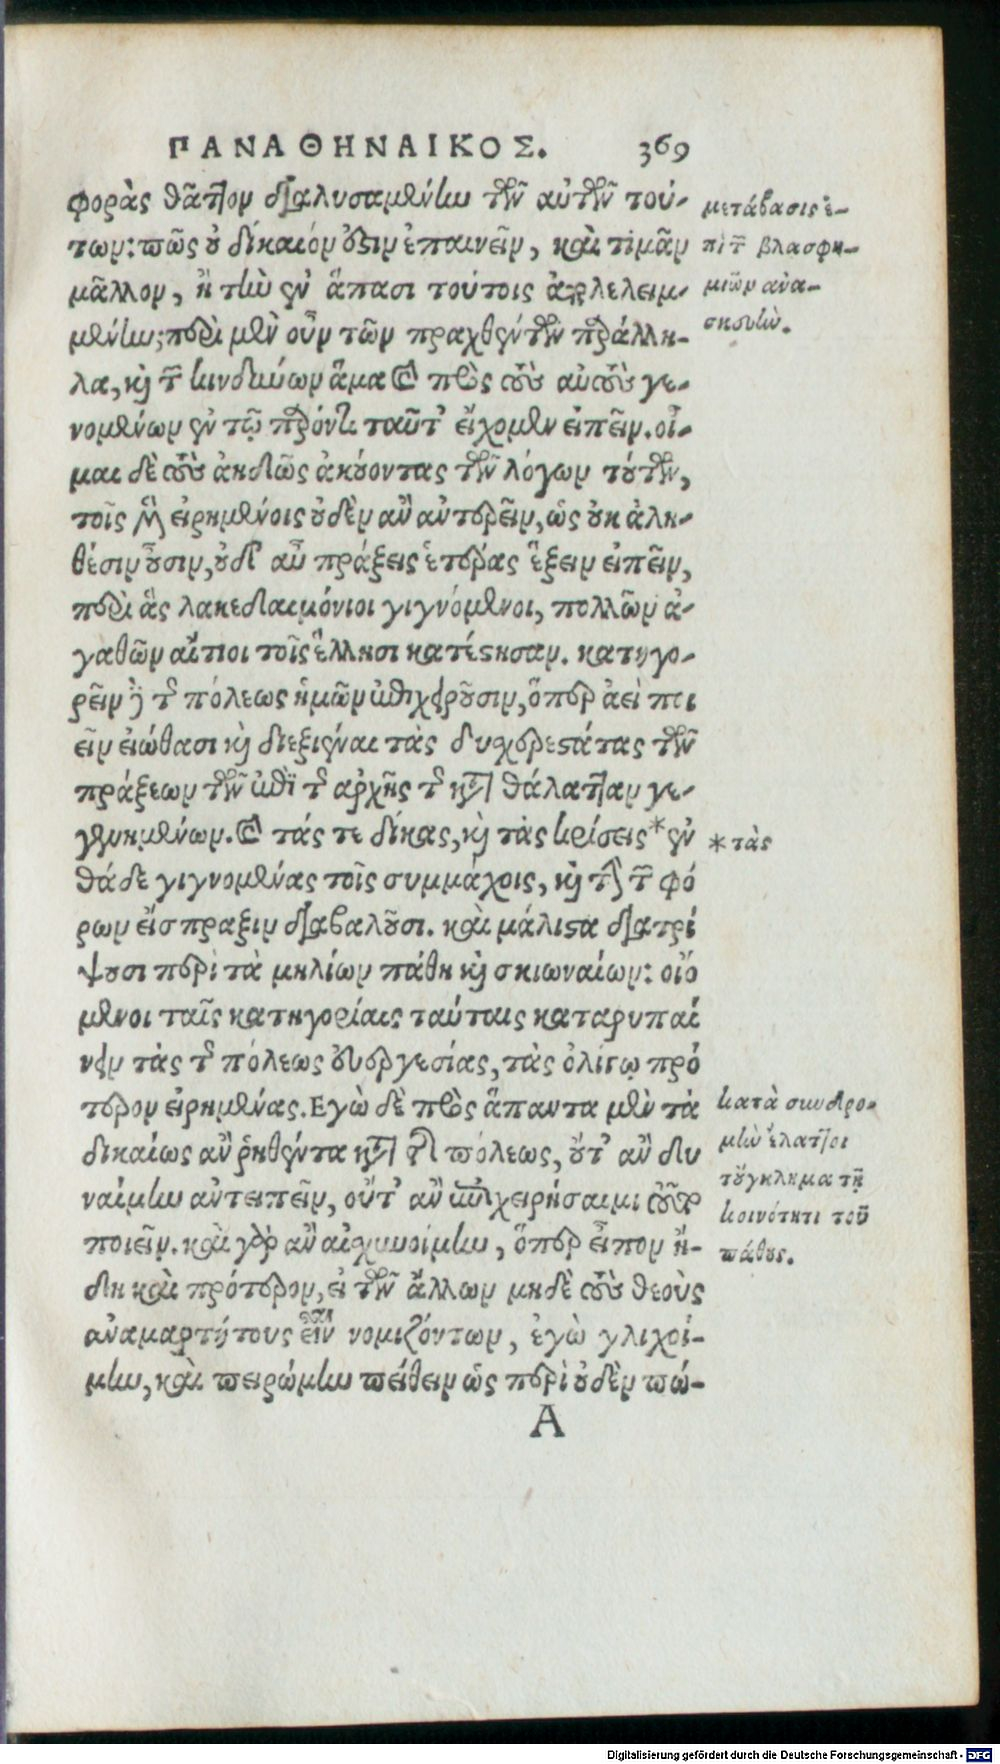 ΠΑΝΑΘΗΝΑΙΚΟΣ. 369
φορὰς θᾶττον διαλυσαμένην τῶν αὐτῶν τού-
των: πῶς οὐ δίκαιόν ὅστιν ἐπαινεῖν, καὶ τιμᾶν
μᾶλλον, ἢ τὴν ἐν ἅπασι τούτοις ἀπολελειμ-
μένην; περὶ μὲν οὖν τῶν πραχθέντων παράλλη-
λα, καὶ τῶν κινδύνων ἅμα καὶ πρὸς τοὺς αὐτοὺς γε-
νομένων ἐν τῷ παρόντι ταῦτ' εἴχομεν εἰπεῖν. οἶ-
μαι δὲ τοὺς ἀηδῶς ἀκούοντας τῶν λόγων τούτων,
τοῖς μὲν εἰρημένοις οὐδὲν ἂν ἀντερεῖν, ὡς οὐκ ἀλη-
θέσιν οὖσιν, οὐδ' αὖ πράξεις ἑτέρας ἕξειν εἰπεῖν,
περὶ ἃς λακεδαιμόνιοι γιγνόμενοι, πολλῶν ἀ-
γαθῶν αἴτιοι τοῖς ἕλλησι κατέστησαν. κατηγο-
ρεῖν δὲ τῆς πόλεως ἡμῶν ἐπιχειροῦσιν, ὅπερ ἀεὶ ποι
εῖν εἰώθασι καὶ διεξιέναι τὰς δυσχερεστάτας τῶν
πράξεων τῶν ἐπὶ τῆς ἀρχῆς τῆς κατὰ θάλατταν γε-
γενημένων. καὶ τάς τε δίκας, καὶ τὰς κρίσεις* ἐν
θάδε γιγνομένας τοῖς συμμάχοις, καὶ τὴν τῶν φό
ρων εἴσπραξιν διαβαλοῦσι. καὶ μάλιστα διατρί
ψουσι περὶ τὰ μηλίων πάθη καὶ σκιωναίων: οἰό
μενοι ταῖς κατηγορίαις ταύταις καταρυπαί
νειν τὰς τῆς πόλεως εὐεργεσίας, τὰς ὀλίγῳ πρό
τερον εἰρημένας. Εγὼ δὲ πρὸς ἅπαντα μὲν τὰ
δικαίως ἂν ῥηθέντα κατὰ τῆς πόλεως, οὔτ' ἂν δυ
ναίμην ἀντειπεῖν, οὔτ' ἂν ἐπιχειρήσαιμι τοῦτο
ποιεῖν. καὶ γὰρ ἂν αἰσχυνοίμην, ὅπερ εἶπον ἤ-
δη καὶ πρότερον, εἰ τῶν ἄλλων μηδὲ τοὺς θεοὺς
ἀναμαρτήτους εἶναι νομιζόντων, ἐγὼ γλιχοί-
μην, καὶ πειρώμην πείθειν ὡς περὶ οὐδὲν πώ-
Α
μετάβασις ἐ-
πὶ τῶν βλασφη-
μιῶν ἀνα-
σκευὴν.
*τὰς
κατὰ συνδρο-
μὴν ἐλαττοῖ
τοὔγκλημα τῇ
κοινότητι τοῦ
πάθους.
Digitalisierung gefördert durch die Deutsche Forschungsgemeinschaft - DFG